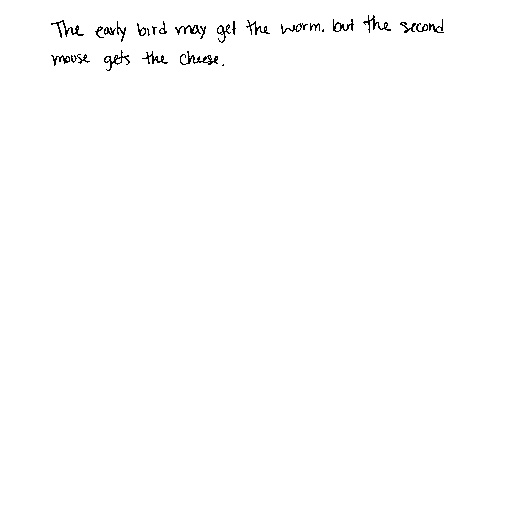 The early bird may get the worm. but the second
mouse gets the cheese.